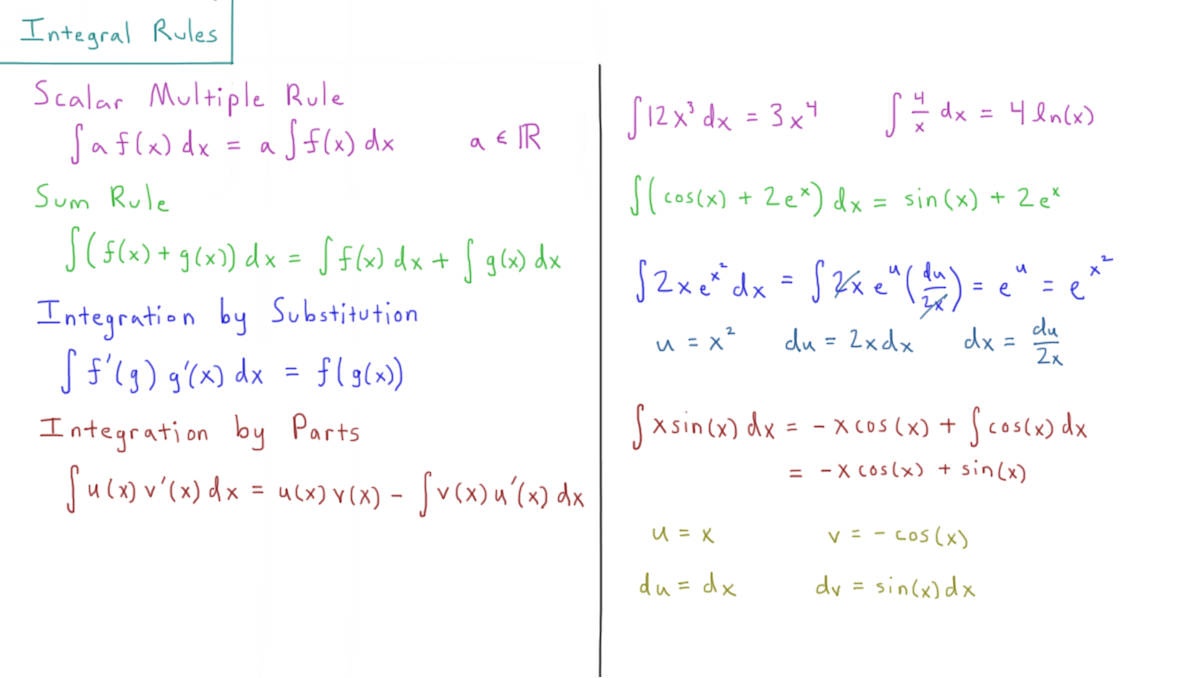 Integral Rules
Scalar Multiple Rule
∫ a f(x) dx = a ∫ f(x) dx    a ∈ ℝ
Sum Rule
∫ (f(x) + g(x)) dx = ∫ f(x) dx + ∫ g(x) dx
Integration by Substitution
∫ f'(g) g'(x) dx = f(g(x))
Integration by Parts
∫ u(x) v'(x) dx = u(x) v(x) - ∫ v(x) u'(x) dx
∫ 12x³ dx = 3x⁴    ∫ 4/x dx = 4 ln(x)
∫ (cos(x) + 2e^x) dx = sin(x) + 2e^x
∫ 2x e^(x²) dx = ∫ 2x e^u (du/2x) = e^u = e^(x²)
u = x²    du = 2x dx    dx = du/2x
∫ x sin(x) dx = - x cos(x) + ∫ cos(x) dx
= -x cos(x) + sin(x)
u = x    v = - cos(x)
du = dx    dv = sin(x) dx